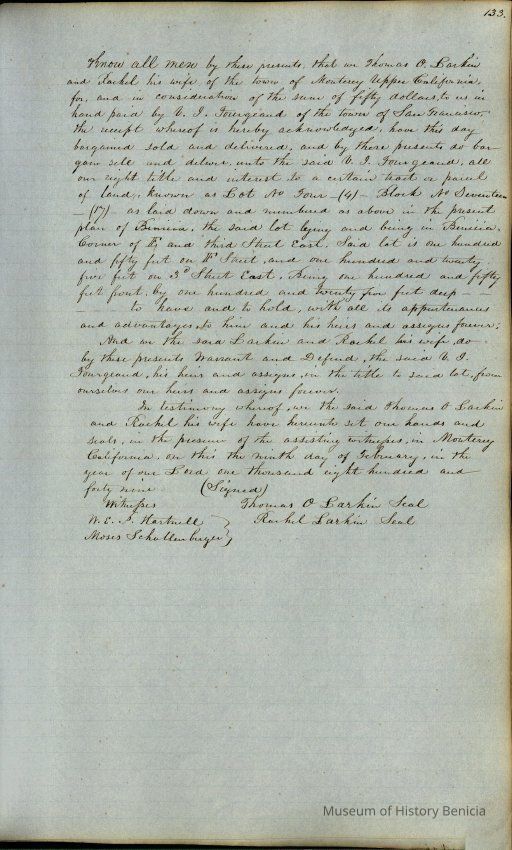 133.
Know all men by these presents, that we Thomas O. Larkin
and Rachel his wife, of the town of Monterey Upper California,
for, and in consideration of the sum of fifty dollars, to us in
hand paid by V. J. Fourgeaud of the town of San Francisco,
the receipt whereof is hereby acknowledged, have this day
bargained sold and delivered, and by these presents do bar-
gain sell and deliver, unto the said V. J. Fourgeaud, all
our right title and interest to a certain tract or parcel
of land, known as Lot No Four -(4)- Block No Seventeen
-(17)- as laid down and numbered as above in the present
plan of Benicia, the said lot lying and being in Benicia,
Corner of and third Street East. Said lot is one hundred
and fifty feet on Street, and one hundred and twenty
five feet on 3d Street East. Being one hundred and fifty
feet front, by one hundred and twenty five feet deep - -
- - to have and to hold, with all its appurtenances
and advantages, to him and his heirs and assigns forever:
And we the said Larkin and Rachel his wife do
by these presents Warrant and Defend, the said V. J.
Fourgeaud, his heirs and assigns, in the title to said lot, from
ourselves our heirs and assigns forever.
In testimony whereof, we the said Thomas O Larkin
and Rachel his wife have hereunto set our hands and
seals, in the presence of the assisting witnesses, in Monterey
California, on this the ninth day of February, in the
year of our Lord one thousand eight hundred and
forty nine (Signed)
Witnesses Thomas O Larkin Seal
W. E. P. Hartnell } Rachel Larkin Seal
Moses Schallenberger }
Museum of History Benicia